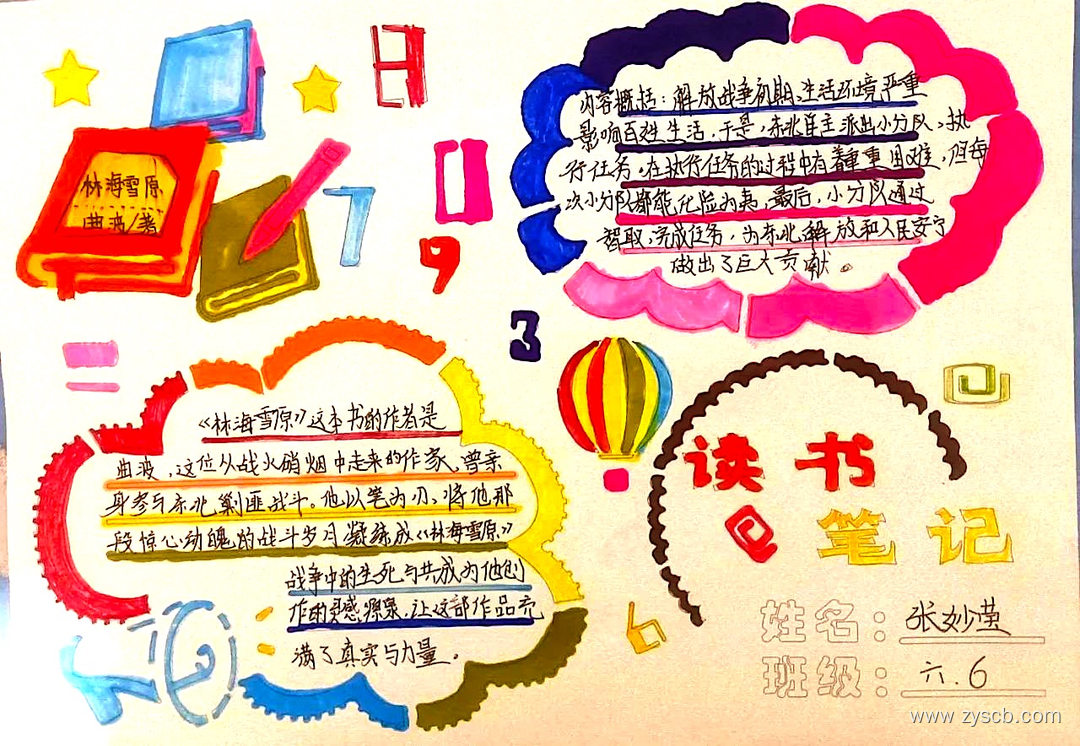 林海雪原
曲波/著
内容概括：解放战争初期、生活环境严重
影响百姓生活，于是，东北自主派出小分队、执
行任务。在执行任务的过程中有着重重困难，但每
次小分队都能化险为夷，最后，小分队通过
智取，完成任务，为东北解放和人民安宁
做出了巨大贡献。
《林海雪原》这本书的作者是
曲波，这位从战火硝烟中走来的作家，曾亲
身参与东北剿匪战斗。他以笔为刃，将他那
段惊心动魄的战斗岁月凝练成《林海雪原》
战争中的生死与共成为他创
作的灵感源泉，让这部作品充
满了真实与力量。
读书
笔记
姓名：张妙莹
班级：六.6
www.zyscb.com